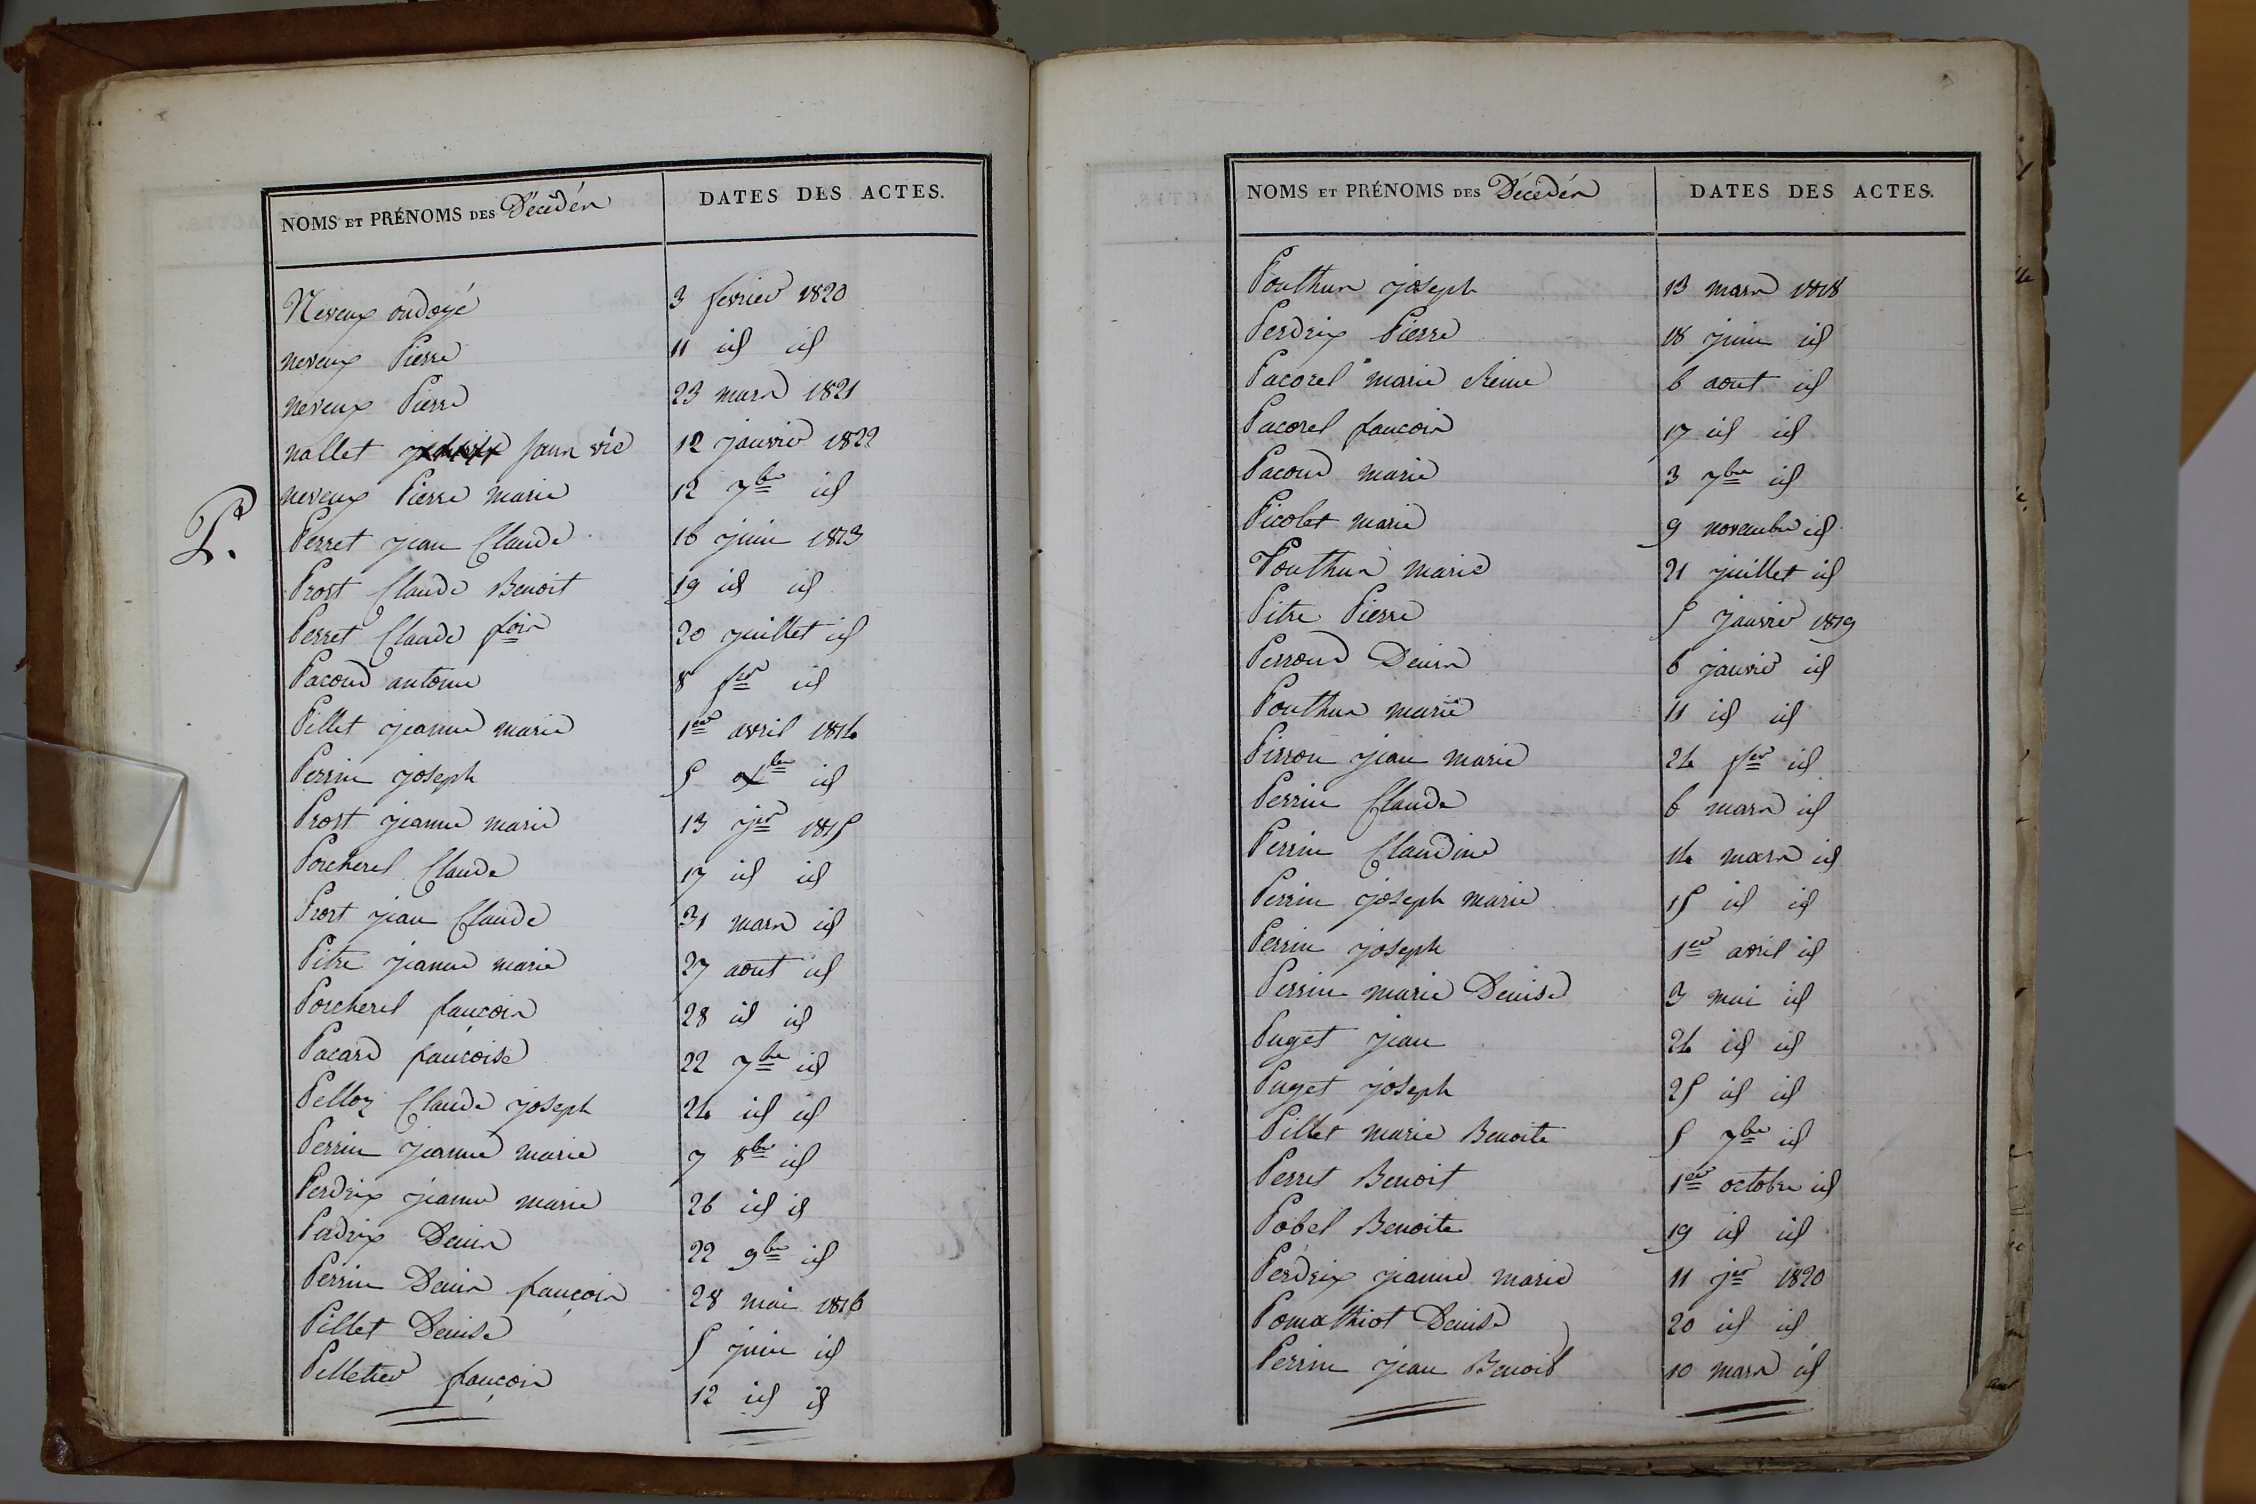 NOMS ET PRÉNOMS DES Décédés DATES DES ACTES.
Neveux ondoyé 3 fevrier 1820
neveux Pierre 11 id id
neveux Pierre 23 mars 1821
nallet Jean 12 janvier 1822
neveux Pierre marie 12 7bre id
P.
Perret jean Claude 16 juin 1813
Prost Claude Benoit 19 id id
Perret Claude fois 20 juillet id
Pacoud antoine 8 id
Pillet jeanne marie 1er avril 1814
Perrin joseph 5 id
Prost jeanne marie 13 jer 1815
Porcherel Claude 17 id id
Prost jean Claude 31 mars id
Pitre jeanne marie 27 aout id
Porcherel françois 28 id id
Pacard francoise 22 7bre id
Pelloz Claude joseph 24 id id
Perrin jeanne marie 7 8bre id
Perdrix jeanne marie 26 id id
Perdrix Denis 22 9bre id
Perrin Denis françois 28 mai 1816
Pillet Denise 5 juin id
Pelletier françois 12 id id
NOMS ET PRÉNOMS DES Décédés DATES DES ACTES.
Pouthus joseph 13 mars 1818
Perdrix Pierre 18 juin id
Pacorel marie Reine 6 aout id
Pacorel francois 17 id id
Pacoud marie 3 7bre id
Picolet marie 9 novembre id
Pouthus marie 21 juillet id
Pitre Pierre 5 janvier 1819
Perroud Denis 6 janvier id
Pouthus marie 11 id id
Pirrou jean marie 24 fer id
Perrin Claude 6 mars id
Perrin Claudine 14 mars id
Perrin joseph marie 15 id id
Perrin joseph 1er avril id
Perrin marie Denise 3 mai id
Puget jean 24 id id
Puget joseph 25 id id
Pillet marie Benoite 5 7bre id
Perret Benoit 1er octobre id
Pobel Benoite 19 id id
Perdrix jeanne marie 11 jer 1820
Pomathiot Denise 20 id id
Perrin jean Benoit 10 mars id